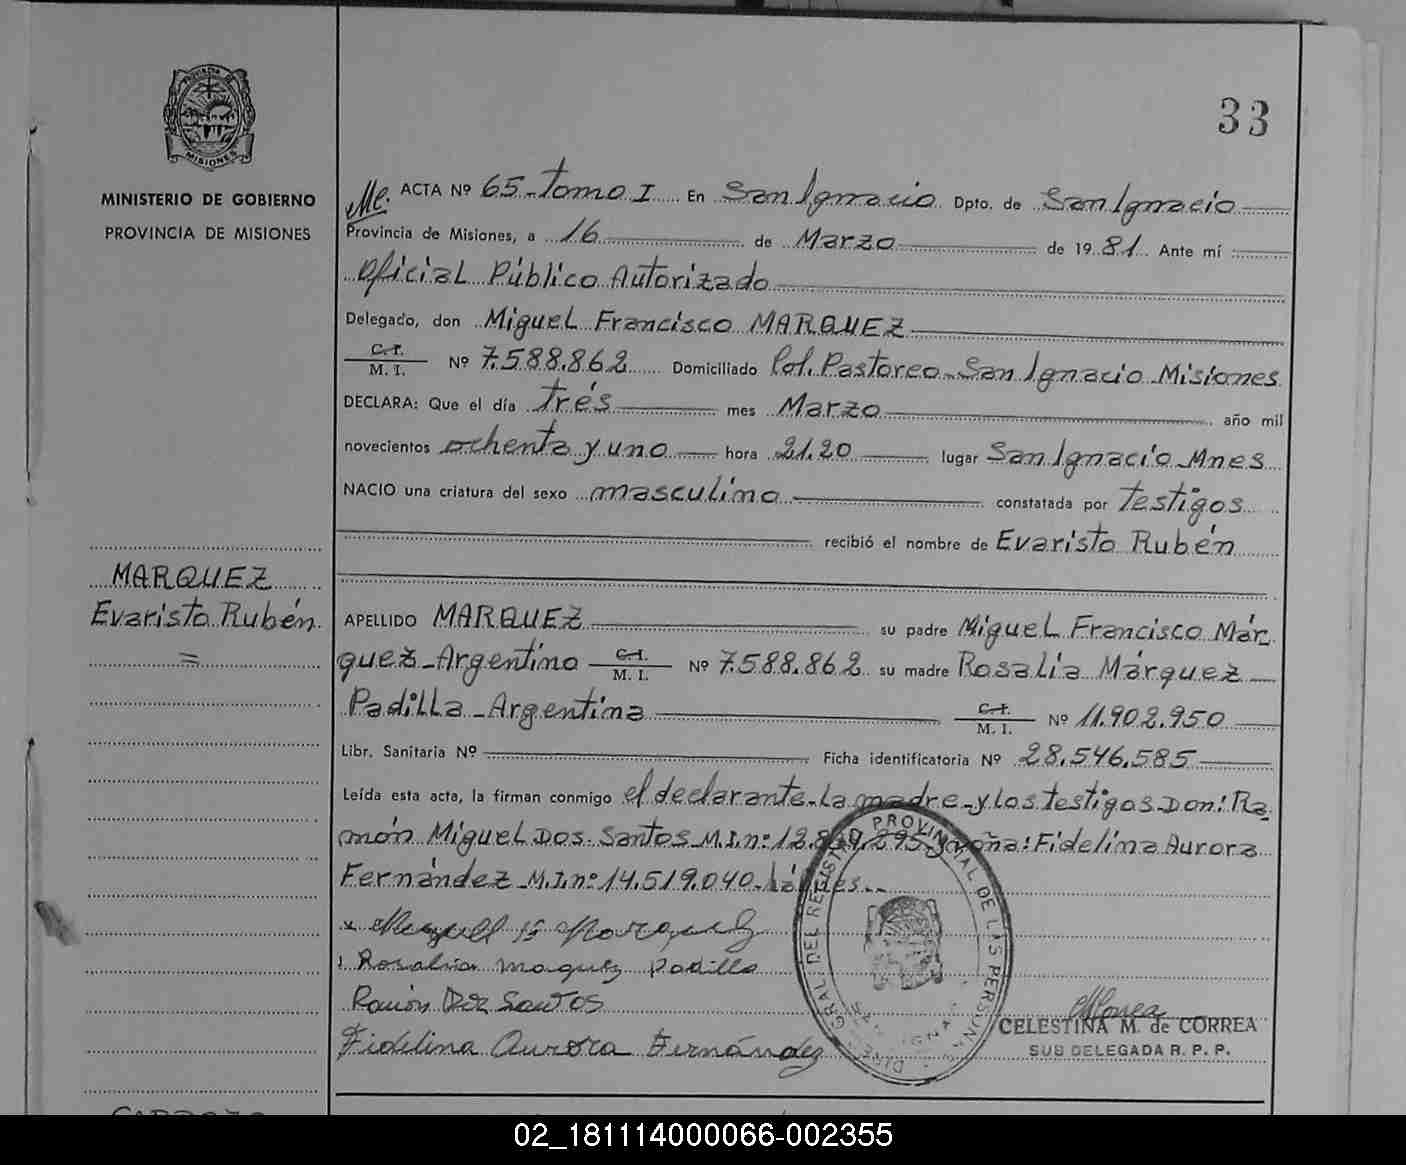 33
MINISTERIO DE GOBIERNO
PROVINCIA DE MISIONES
MISIONES
ACTA Nº 65-Tomo I En San Ignacio Dpto. de San Ignacio
Provincia de Misiones, a 16 de Marzo de 1981. Ante mí
Oficial Público Autorizado
Delegado, don Miguel Francisco MARQUEZ
C.I.
M. I. Nº 7.588.862 Domiciliado Col. Pastoreo-San Ignacio Misiones
DECLARA: Que el día trés mes Marzo año mil
novecientos ochenta y uno hora 21.20 lugar San Ignacio Mnes
NACIO una criatura del sexo masculino constatada por testigos
recibió el nombre de Evaristo Rubén
MARQUEZ
Evaristo Rubén.
=
APELLIDO MARQUEZ su padre Miguel Francisco Már
quez-Argentino C.I. M. I. Nº 7.588.862 su madre Rosalia Márquez
Padilla-Argentina C.I. M. I. Nº 11.902.950
Libr. Sanitaria Nº Ficha identificatoria Nº 28.546.585
Leída esta acta, la firman conmigo el declarante-la madre-y los testigos Don: Ra
món Miguel Dos Santos M.I.nº: 12. .295-y doña: Fidelina Aurora
Fernández M.I.nº 14.519.040-hábiles.-
Rosalia Maquez Padilla
Ramón Dos Santos
Fidelina Aurora Fernández
PROVINCIAL DE LAS PERSONAS
CELESTINA M. de CORREA
SUB DELEGADA R. P. P.
02_181114000066-002355